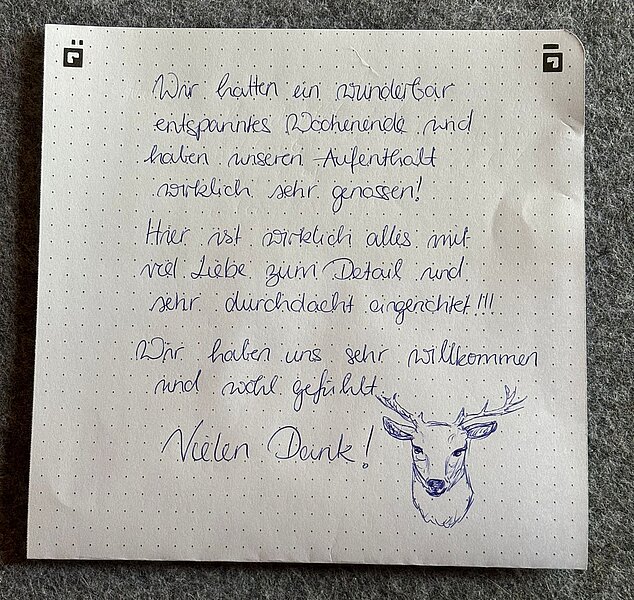 Wir hatten ein wunderbar
entspanntes Wochenende und
haben unseren Aufenthalt
wirklich sehr genossen!
Hier ist wirklich alles mit
viel Liebe zum Detail und
sehr durchdacht eingerichtet!!!
Wir haben uns sehr willkommen
und wohl gefühlt.
Vielen Dank!